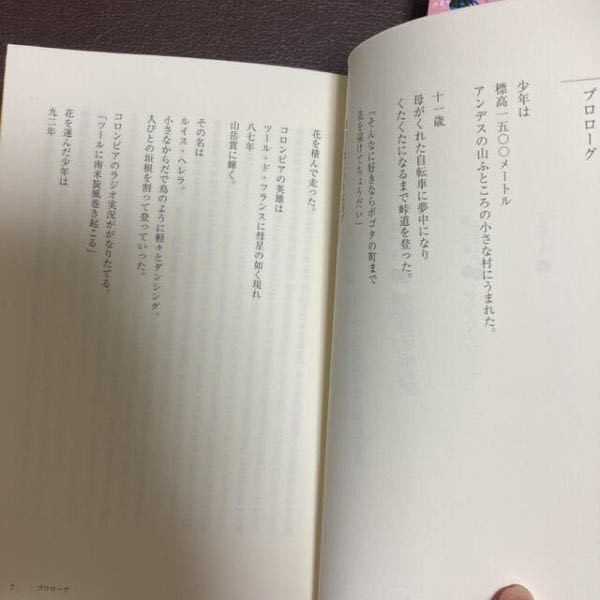 プロローグ
少年は
標高一五〇〇メートル
アンデスの山ふところの小さな村にうまれた。
十一歳
母がくれた自転車に夢中になり
くたくたになるまで峠道を登った。
「そんなに好きならボゴタの町まで
花を届けてちょうだい」
花を積んで走った。
コロンビアの英雄は
ツール・ド・フランスに彗星の如く現れ
八七年
山岳賞に輝く。
その名は
ルイス・ヘレラ。
小さなからだで鳥のように軽々とダンシング。
人びとの垣根を割って登っていった。
コロンビアのラジオ実況ががなりたてる。
「ツールに南米旋風巻き起こる」
花を運んだ少年は
九二年
7 プロローグ